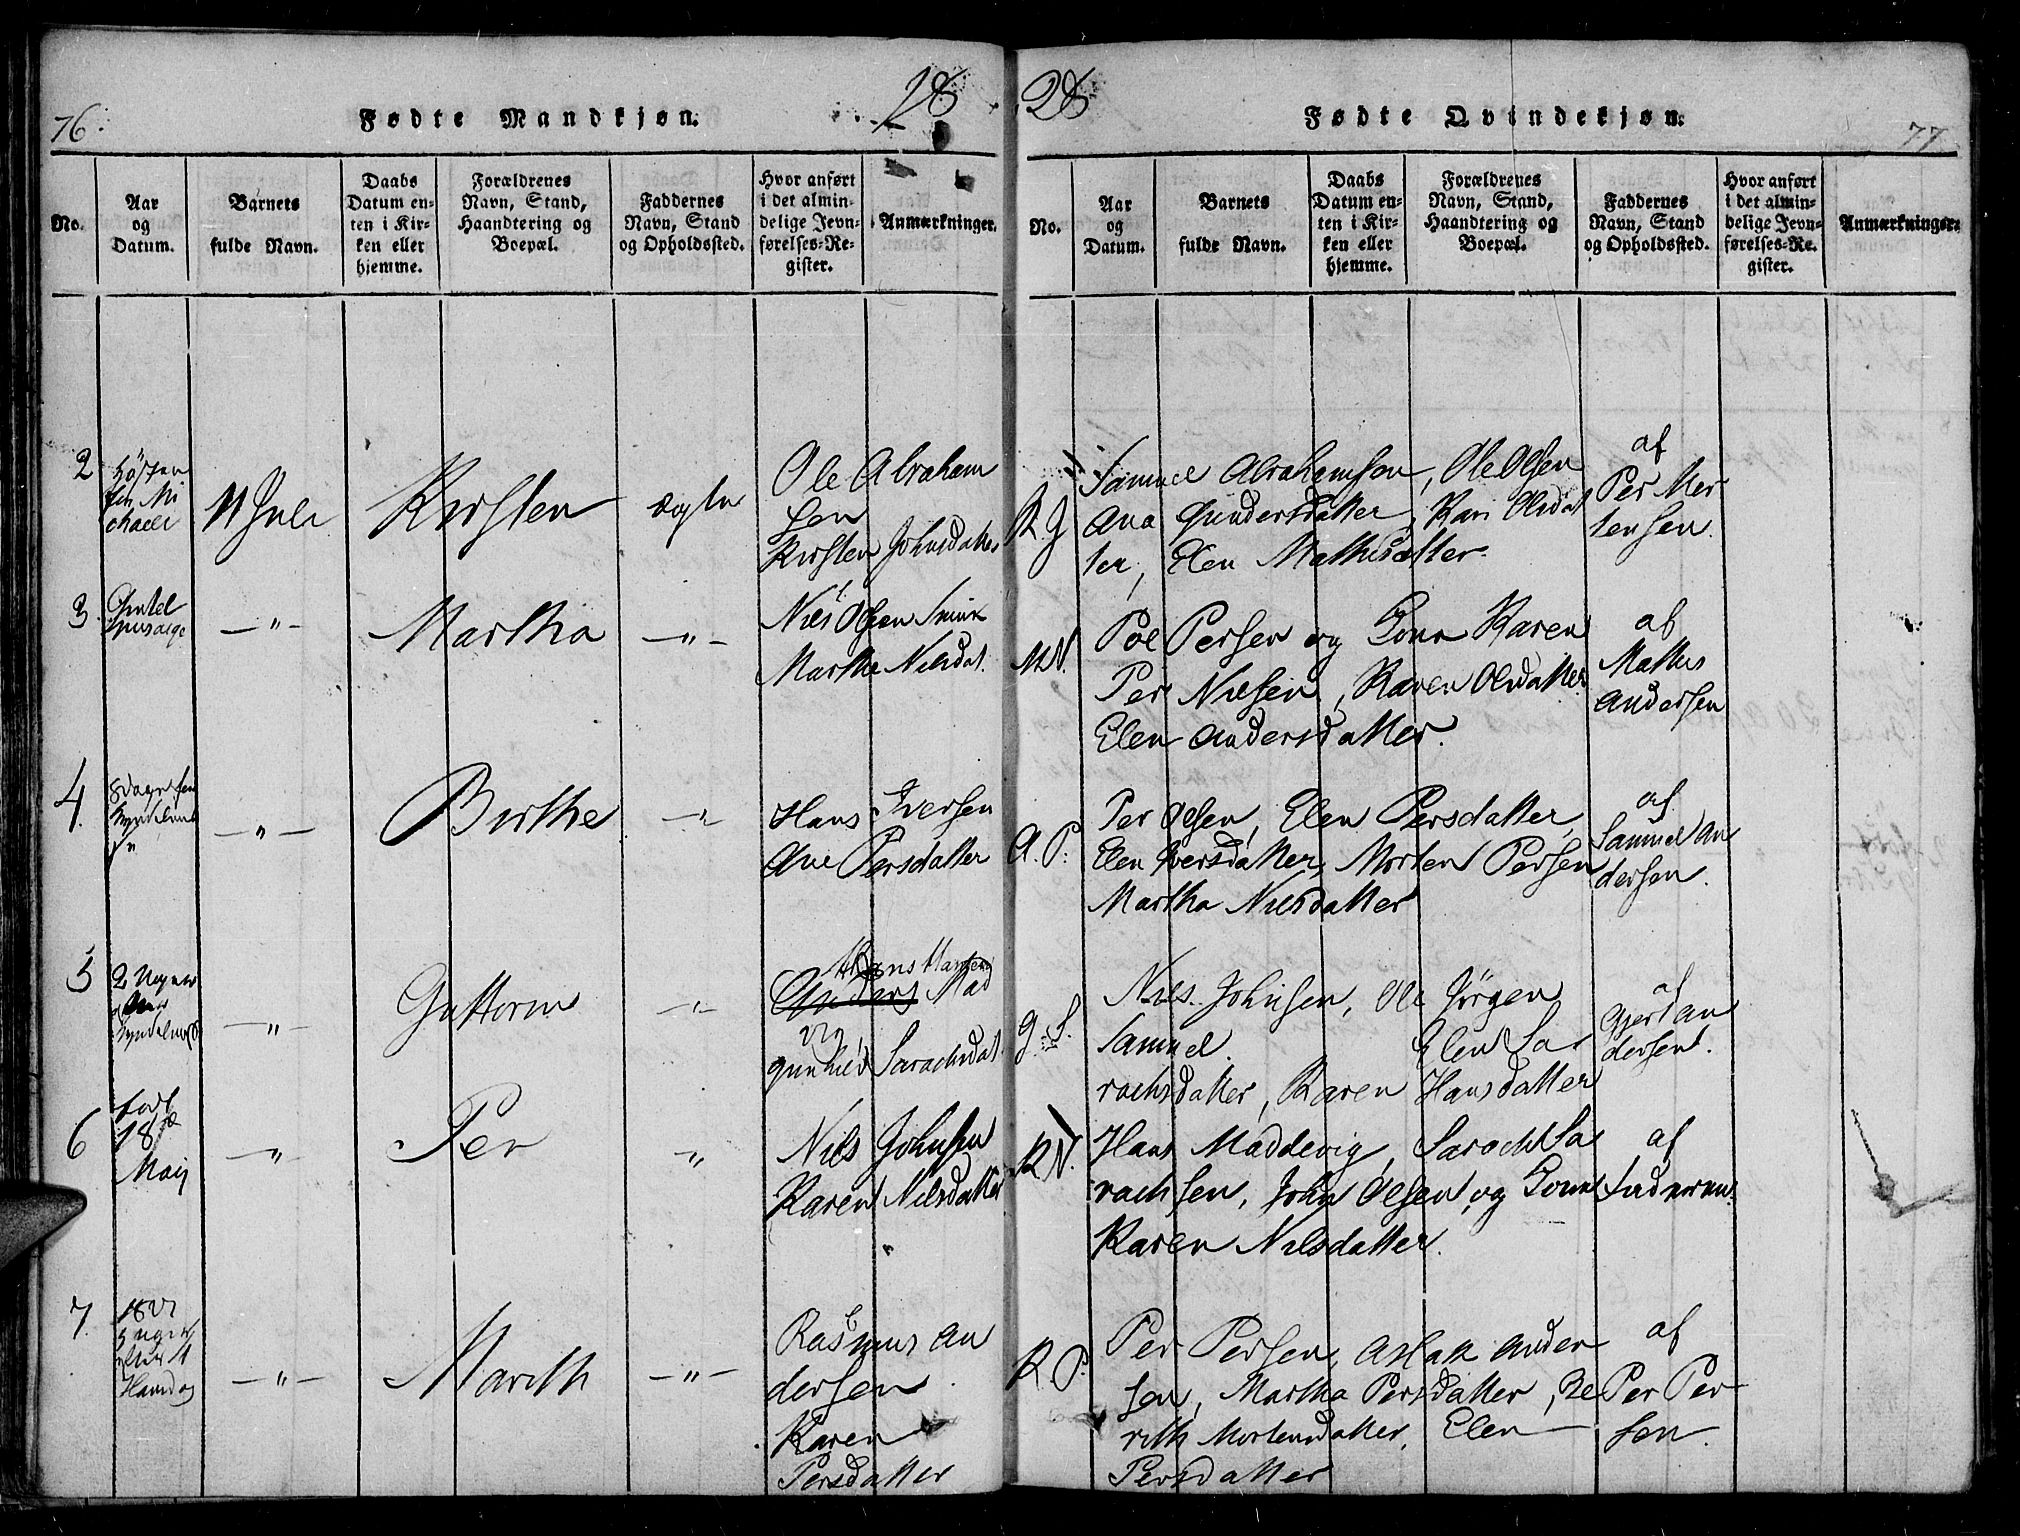 76.
Fødte Mandkjøn.
28
No.
Aar og Datum.
Barnets fulde Navn.
Daabs Datum enten i Kirken eller hjemme.
Forældrenes Navn, Stand, Haandtering og Boepæl.
Faddernes Navn, Stand og Opholdssted.
Hvor anført i det almindelige Jevnførelses-Register.
Anmærkninger.
28
Fødte Qvindekjøn.
77
No.
Aar og Datum.
Barnets fulde Navn.
Daabs Datum enten i Kirken eller hjemme.
Forældrenes Navn, Stand, Haandtering og Boepæl.
Faddernes Navn, Stand og Opholdssted.
Hvor anført i det almindelige Jevnførelses-Re. gister.
Anmærkninger.
2
Mi
chaeli
11 Juli
Kirsten
ægte
Ole Abraham
sen
Kirsten Johnsdatter
K. J
Samuel Abrahamsen, Ole Olsen
Ana Gundersdatter, Kari Olsdat
ter, Elen Mathisdatter.
af
Per Mor
tensen.
3
—"—
Martha
—"—
Nils Olsen
Marthe Nilsdat.
M N.
Poe Persen og Kone Karen
Per Nielsen, Karen Olsdatter
Elen Andersdatter.
af
Mathis
Andersen
4.
8 dage
—"—
Birthe
—"
Hans Iversen
Ane Persdatter
A. P.
Per Olsen, Elen Persdatter,
Elen Iversdatter, Morten Persen
Martha Nilsdatter
af
Samuel An
dersen.
5
2 Uger
—"—
Guttorm
—"
Hans Hansen
Anders Mad
vig
Gunhild Sarachsdat.
G. S.
Nils Johnsen, Ole Jørgen
Samuel. Elen Sa
rachsdatter, Karen Hansdatter
af
Gjert An
dersen.
6
født
18de
Maij
—"—
Per
"
Nils Johnsen
Karen Nilsdatter
K N.
Hans Maddevig, Sarach Sa
rachsen, John Olsen og Kone
Karen Nilsdatter.
af
Faderen.
7.
—"—
Marith
—"—
Rasmus An
dersen
Karen
Persdatter
K P.
Per Persen, Aslak Ander
sen, Martha Persdatter, Be
rith Mortensdatter, Elen
Persdatter
af
Per Per
sen.